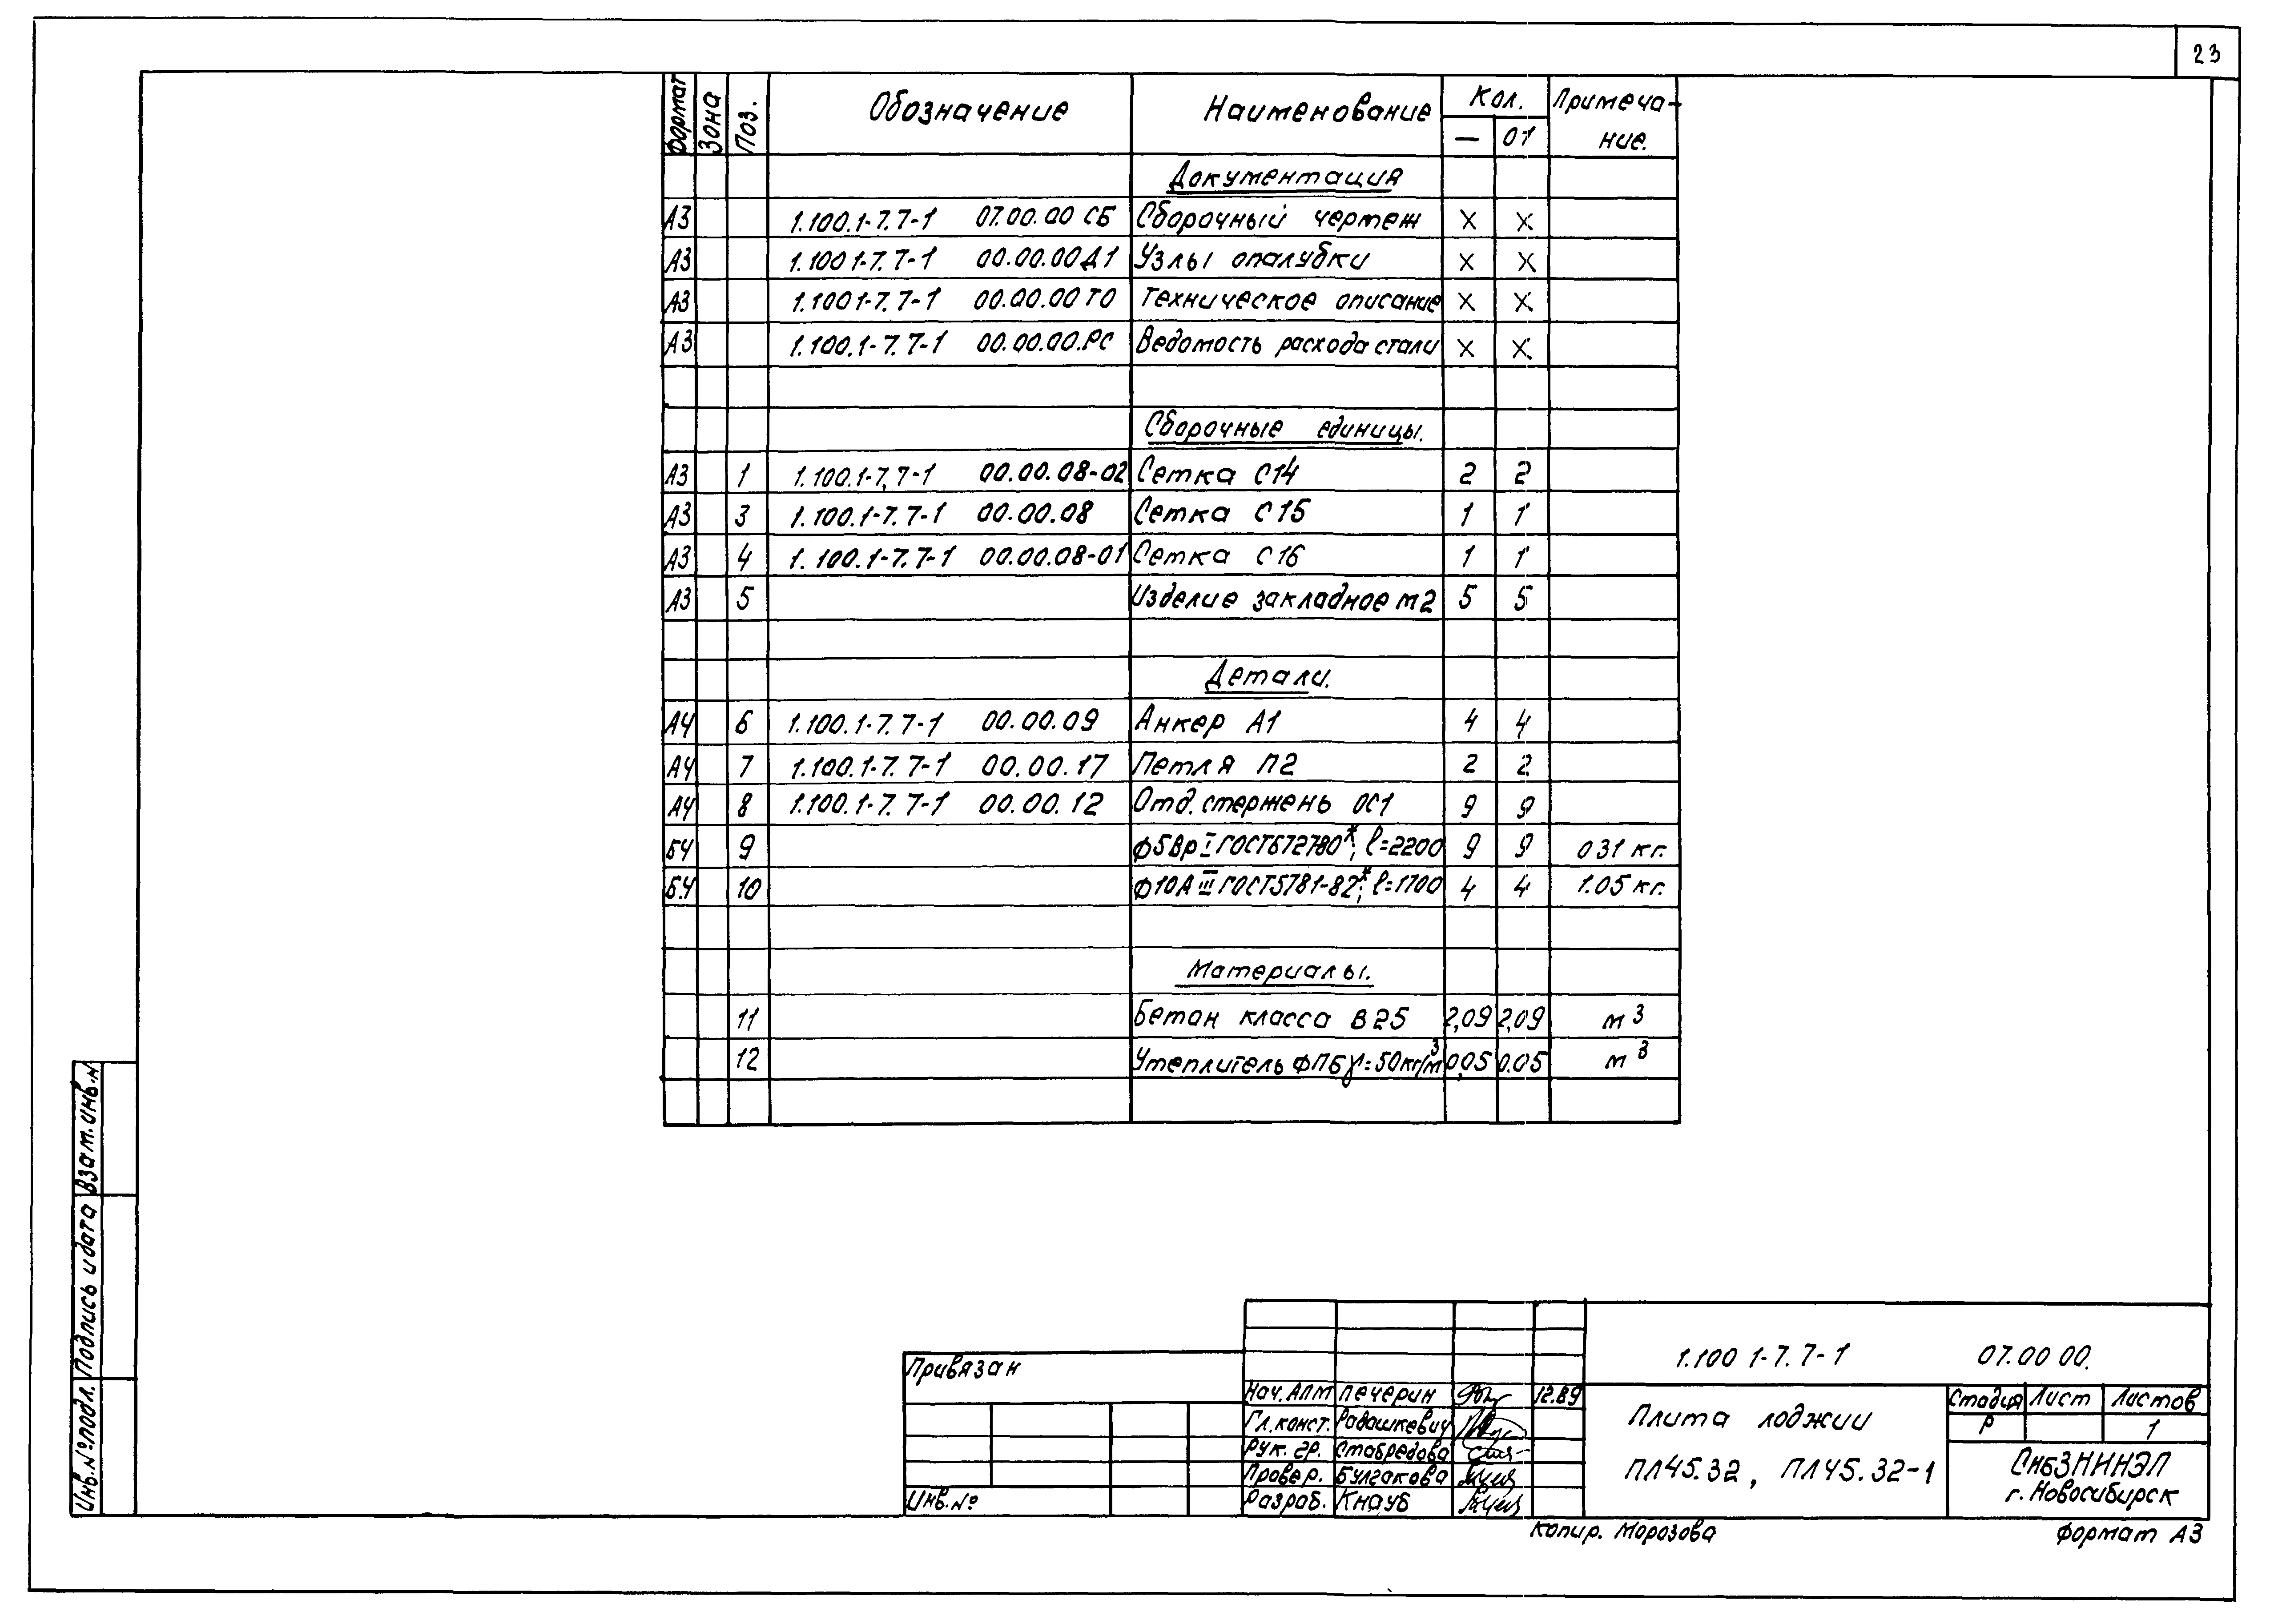 23
Формат Зона Поз. Обозначение Наименование Кол. Примеча-
— 01 ние.
Документация
А3 1.100.1-7.7-1 07.00.00 СБ Сборочный чертеж X X
А3 1.100 1-7.7-1 00.00.00Д1 Узлы опалубки X X
А3 1.100 1-7.7-1 00.00.00ТО Техническое описание X X
А3 1.100.1-7.7-1 00.00.00.РС Ведомость расхода стали X X
Сборочные единицы.
А3 1 1.100.1-7.7-1 00.00.08-02 Сетка С14 2 2
А3 3 1.100.1-7.7-1 00.00.08 Сетка С15 1 1
А3 4 1.100.1-7.7-1 00.00.08-01 Сетка С16 1 1
А3 5 Изделие закладное м2 5 5
Детали.
А4 6 1.100.1-7.7-1 00.00.09 Анкер А1 4 4
А4 7 1.100.1-7.7-1 00.00.17 Петля П2 2 2
А4 8 1.100.1-7.7-1 00.00.12 Отд.стержень ОС1 9 9
БЧ 9 ф5Вр I ГОСТ672780*, ℓ=2200 9 9 0 31 кг.
Б.Ч 10 ф10А III ГОСТ5781-82*; ℓ=1700 4 4 1.05 кг.
Материалы.
11 Бетон класса В25 2,09 2,09 м³
12 Утеплитель ФПБ γ=50кг/м³ 0,05 0.05 м³
Инв.№подл. Подпись и дата Взам.инв.N
Привязан
Инв.№
1.100 1-7.7-1 07.00 00.
Нач.АПМ Печерин 12.89
Гл.конст. Радашкевич
Рук. гр. Стабредова
Провер. Булгакова
Разраб. Кнауб
Плита лоджии
ПЛ45.32, ПЛ45.32-1
Стадия Лист Листов
Р 1
СибЗНИИЭП
г. Новосибирск
Копир. Морозова Формат А3